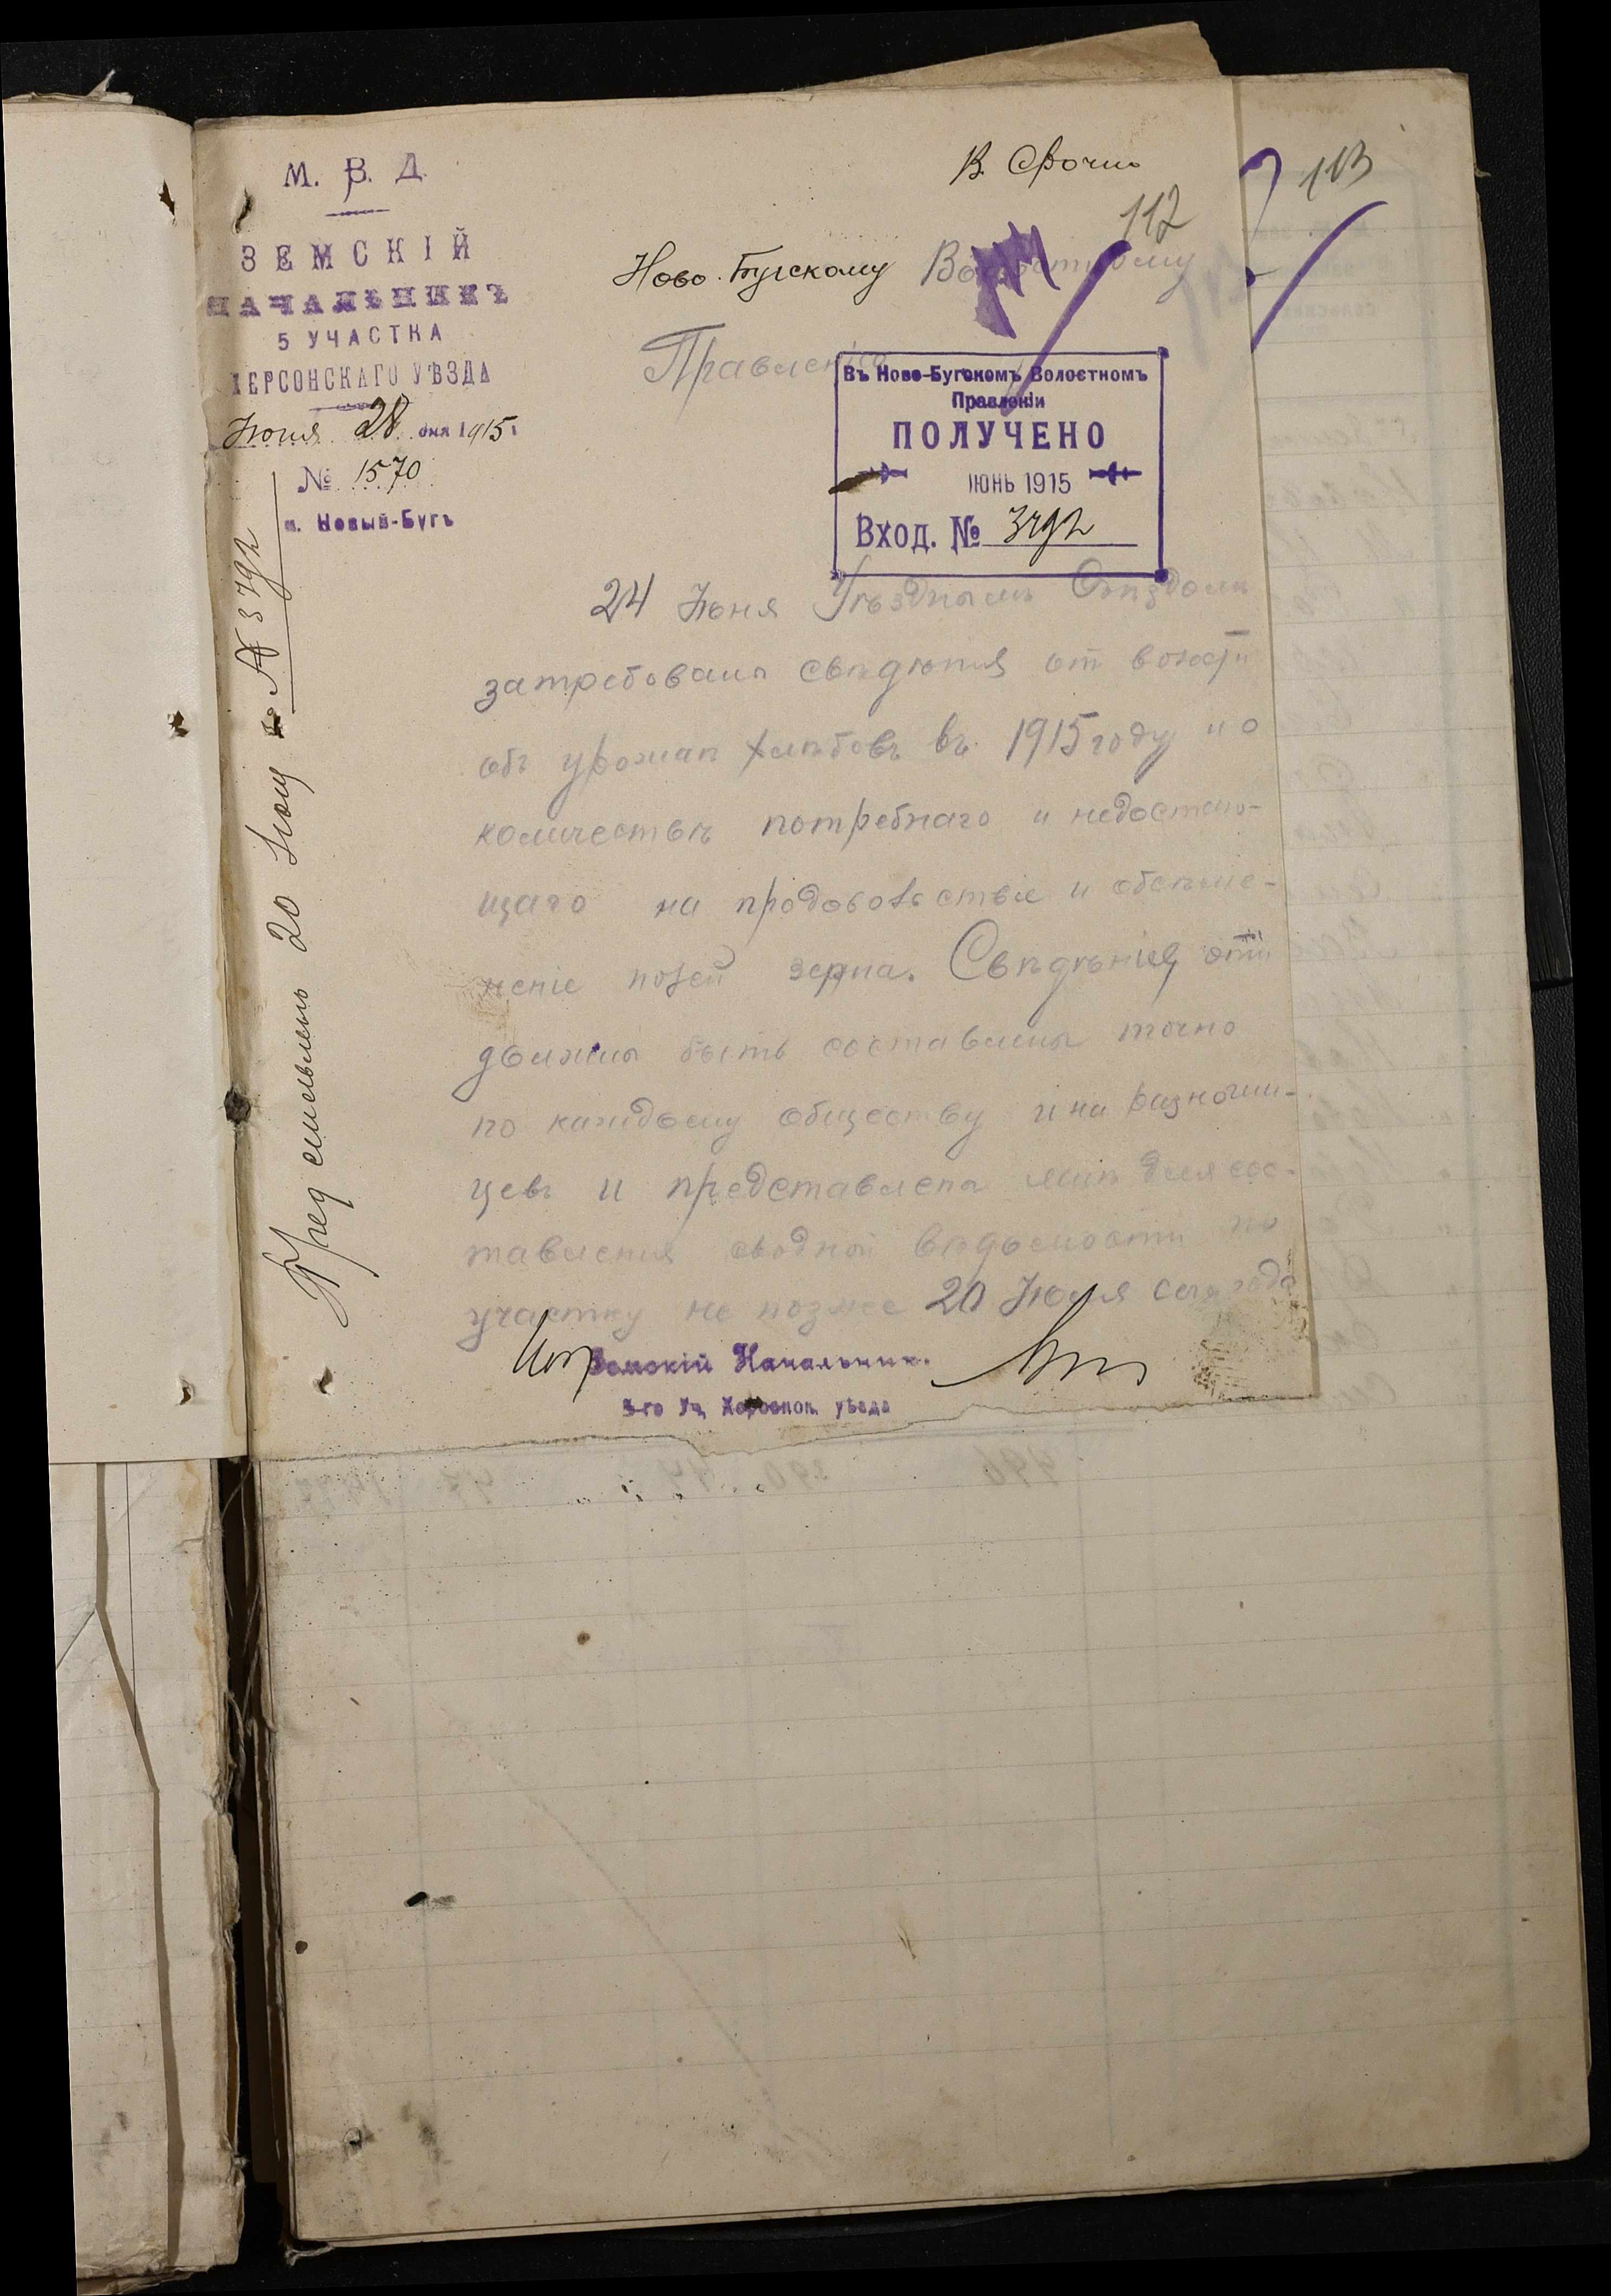 М. В. Д.
ЗЕМСКІЙ
НАЧАЛЬНИКЪ
5 УЧАСТКА
ХЕРСОНСКАГО УѢЗДА
Іюня 28 дня 1915 г.
№ 1570
м. Новый-Бугъ
В. Срочно
112
113
Ново-Бугскому Волостному
Правленію
Въ Ново-Бугскомъ Волостномъ
Правленіи
ПОЛУЧЕНО
ІЮНЬ 1915
Вход. № 3792
24 Іюня Уѣзднымъ Съѣздомъ
затребованы свѣдѣнія от волости
объ урожаѣ хлѣбовъ въ 1915 году и о
количествѣ потребнаго и недостаю-
щаго на продовольствіе и обсѣме-
неніе полей зерна. Свѣдѣнія эти
должны быть составлены точно
по каждому обществу и на разночин-
цевъ и представлены мнѣ для сос-
тавленія сводной вѣдомости по
участку не позже 20 Іюля сего года
Земскій Начальник
5-го Уч. Херсонск. уѣзда
20 Іюлу № 3792